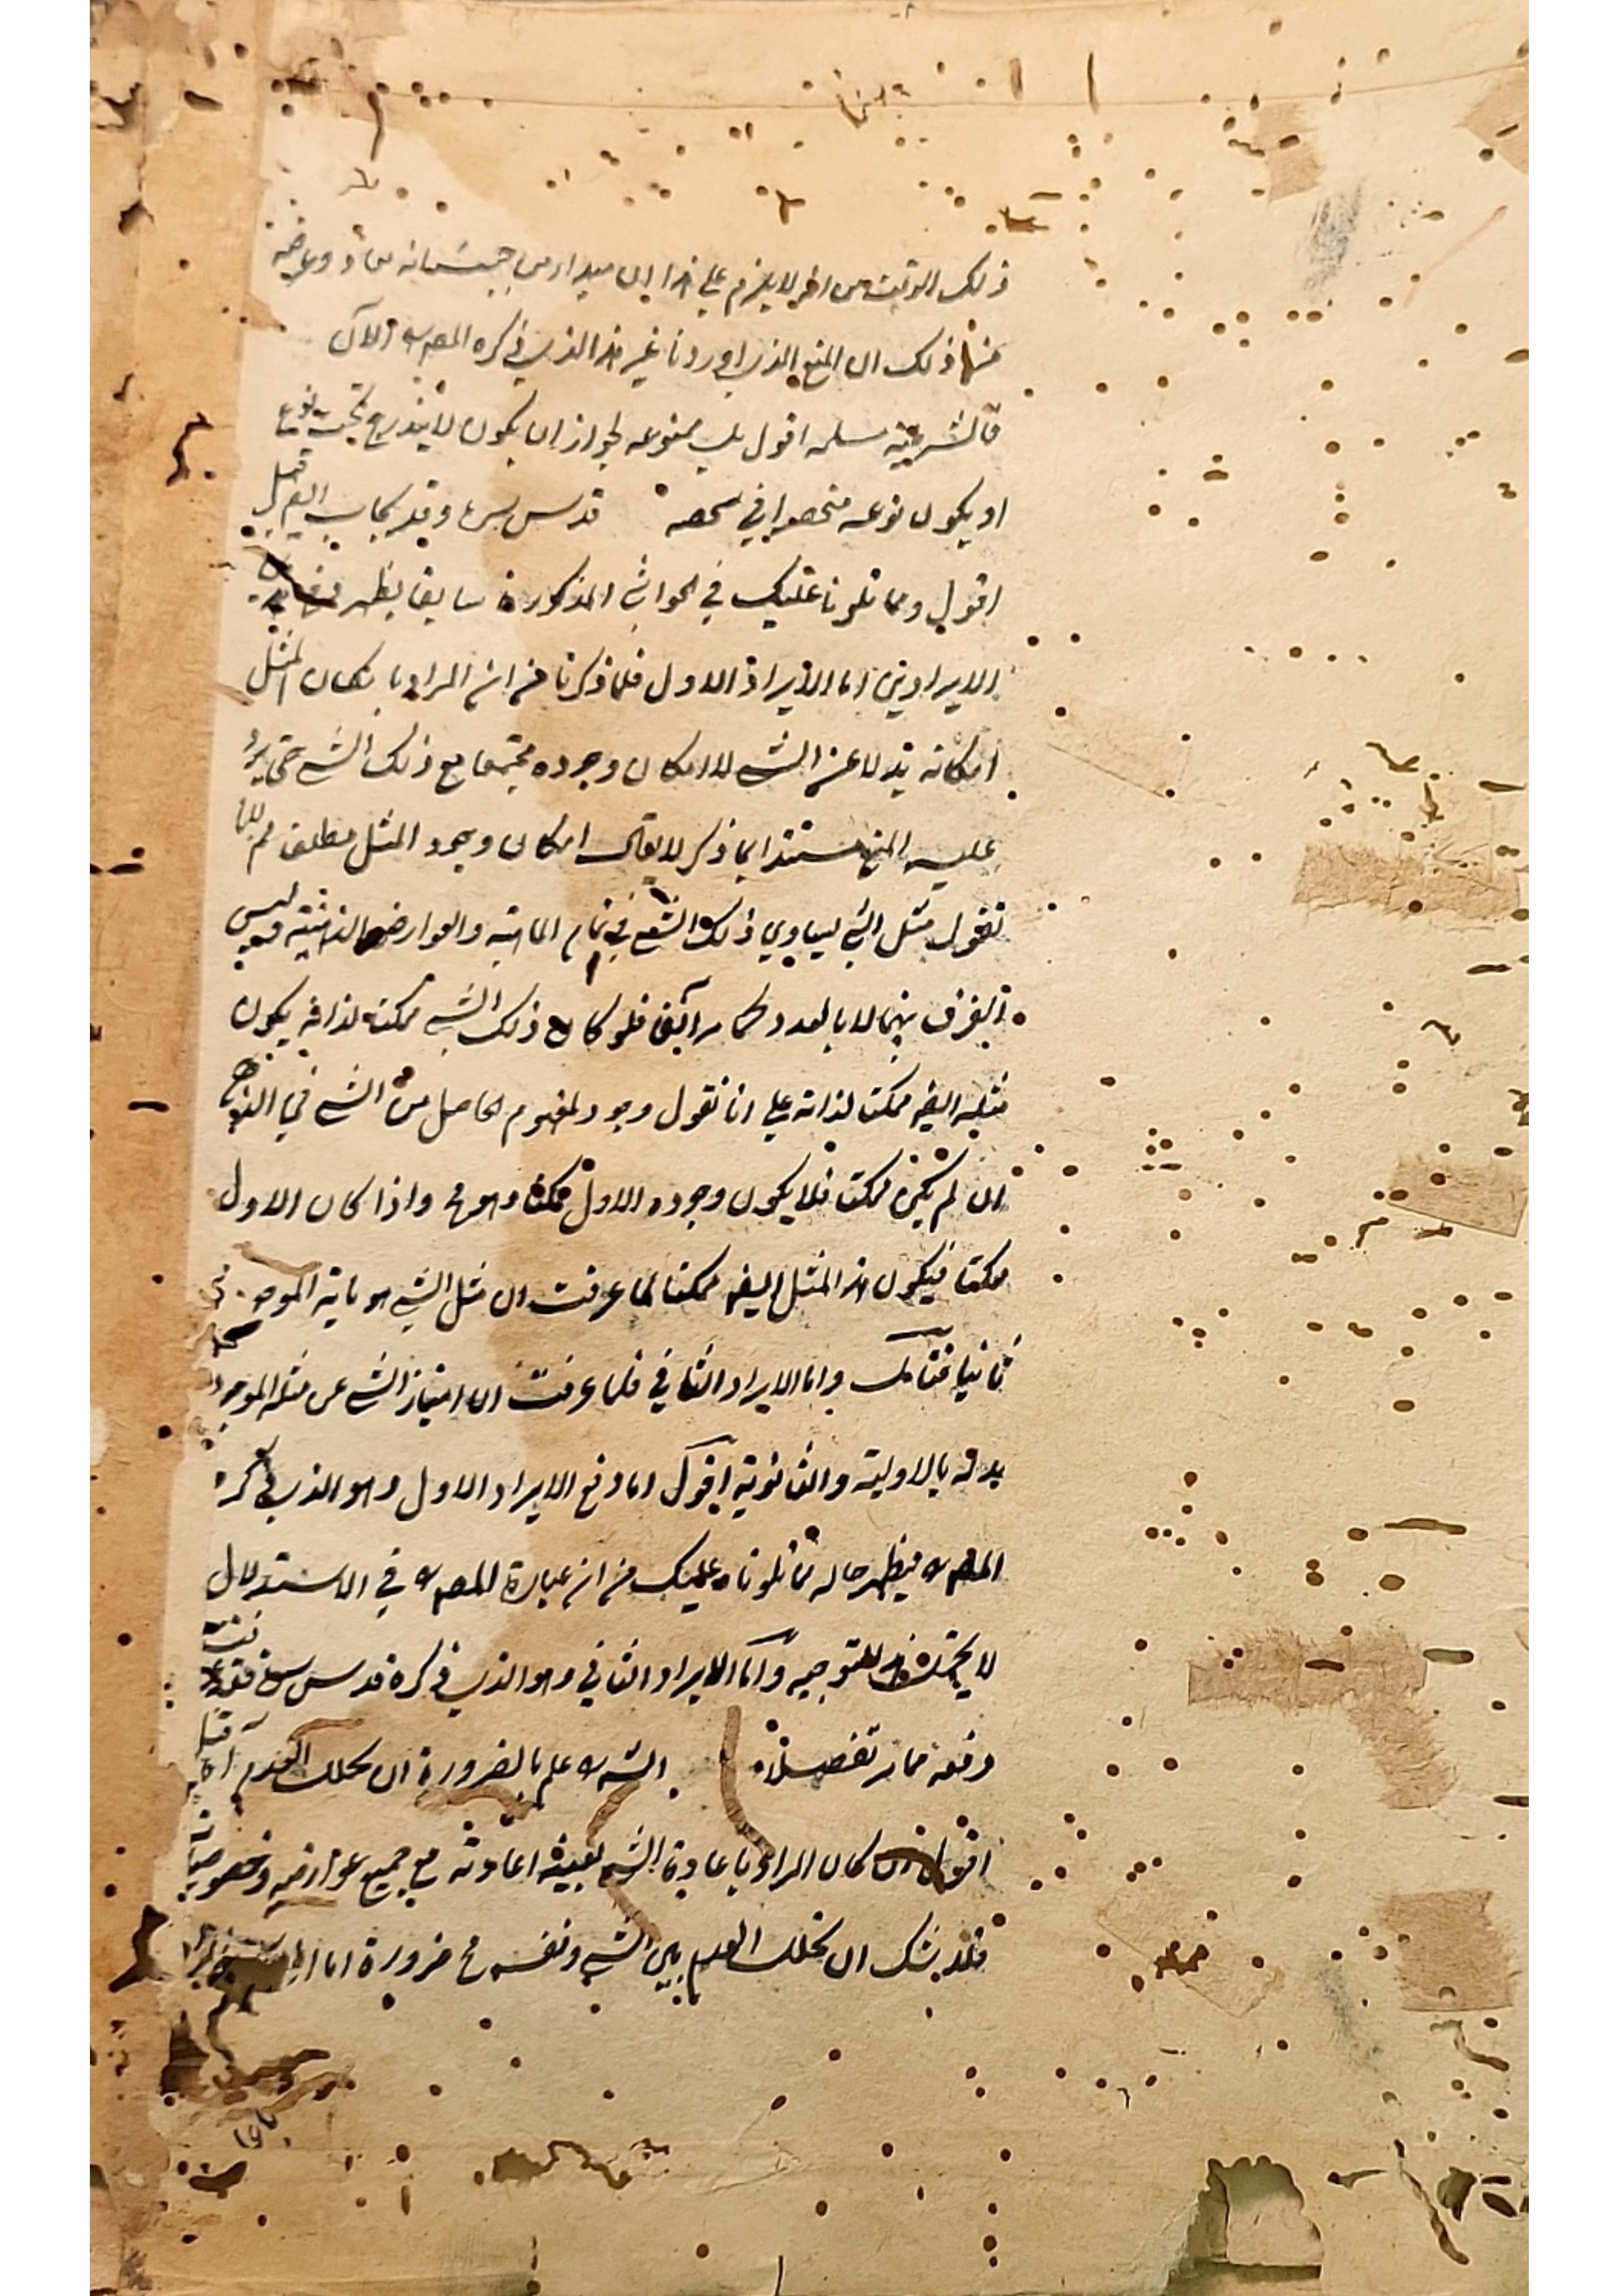 ذلك الوقت من اخر لا يلزم على هذا ان
ذلك ان المنع الذي اوردنا غير هذا الذي ذكره المص ره الآن
قال الش مسلمه اقول بل ممنوعه لجواز ان يكون لا يندرج تحت نوع
او يكون نوعه منحصرا في شخصه قدس سره وقد يجاب
اقول ومما تلونا عليك في الحواشي المذكورة سابقا يظهر
الايرادين اما الايراد الاول فلما ذكرنا من ان المراد بامكان المثل
امكانه بدلا عن الشي لا امكان وجوده مجتمعا مع ذلك الشي حتى يرد
عليه المنع مستندا بما ذكر لا يقال امكان وجود المثل مطلقا مم لانا
نقول مثل الشي يساوي ذلك الشي في تمام الماهية والعوارض الذهنية وليس
الفرق بينهما الا بالعدد كما مر آنفا فلو كان ذلك الشي ممكنا لذاته يكون
مثله ايضا ممكنا لذاته على انا نقول وجود المفهوم الحاصل من الشي في
ان لم يكن ممكنا فلا يكون وجوده الاول ممكنا وهو مح واذا كان الاول
ممكنا فيكون هذا المثل ايضا ممكنا لما عرفت ان مثل الشي هو
ثانيا فتأمل واما الايراد الثاني فلما عرفت ان امتياز الشي عن مثله الموجود
بدله بالاولية والثانوية اقول اما دفع الايراد الاول وهو الذي ذكره
المص ره فيظهر حاله مما تلوناه عليك من ان عبارة المص ره في الاستدلال
لا يحتمل هذا التوجيه واما الايراد الثاني وهو الذي ذكره قدس سره فقد عرفت
دفعه مما مر تفصيلا الش ره علم بالضرورة ان تخلل العدم آه قيل
اقول ان كان المراد باعادة الشي بعينه اعادته مع جميع عوارضه وخصوصياته
فلا شك ان تخلل العدم بين الشي ونفسه مح ضرورة اما